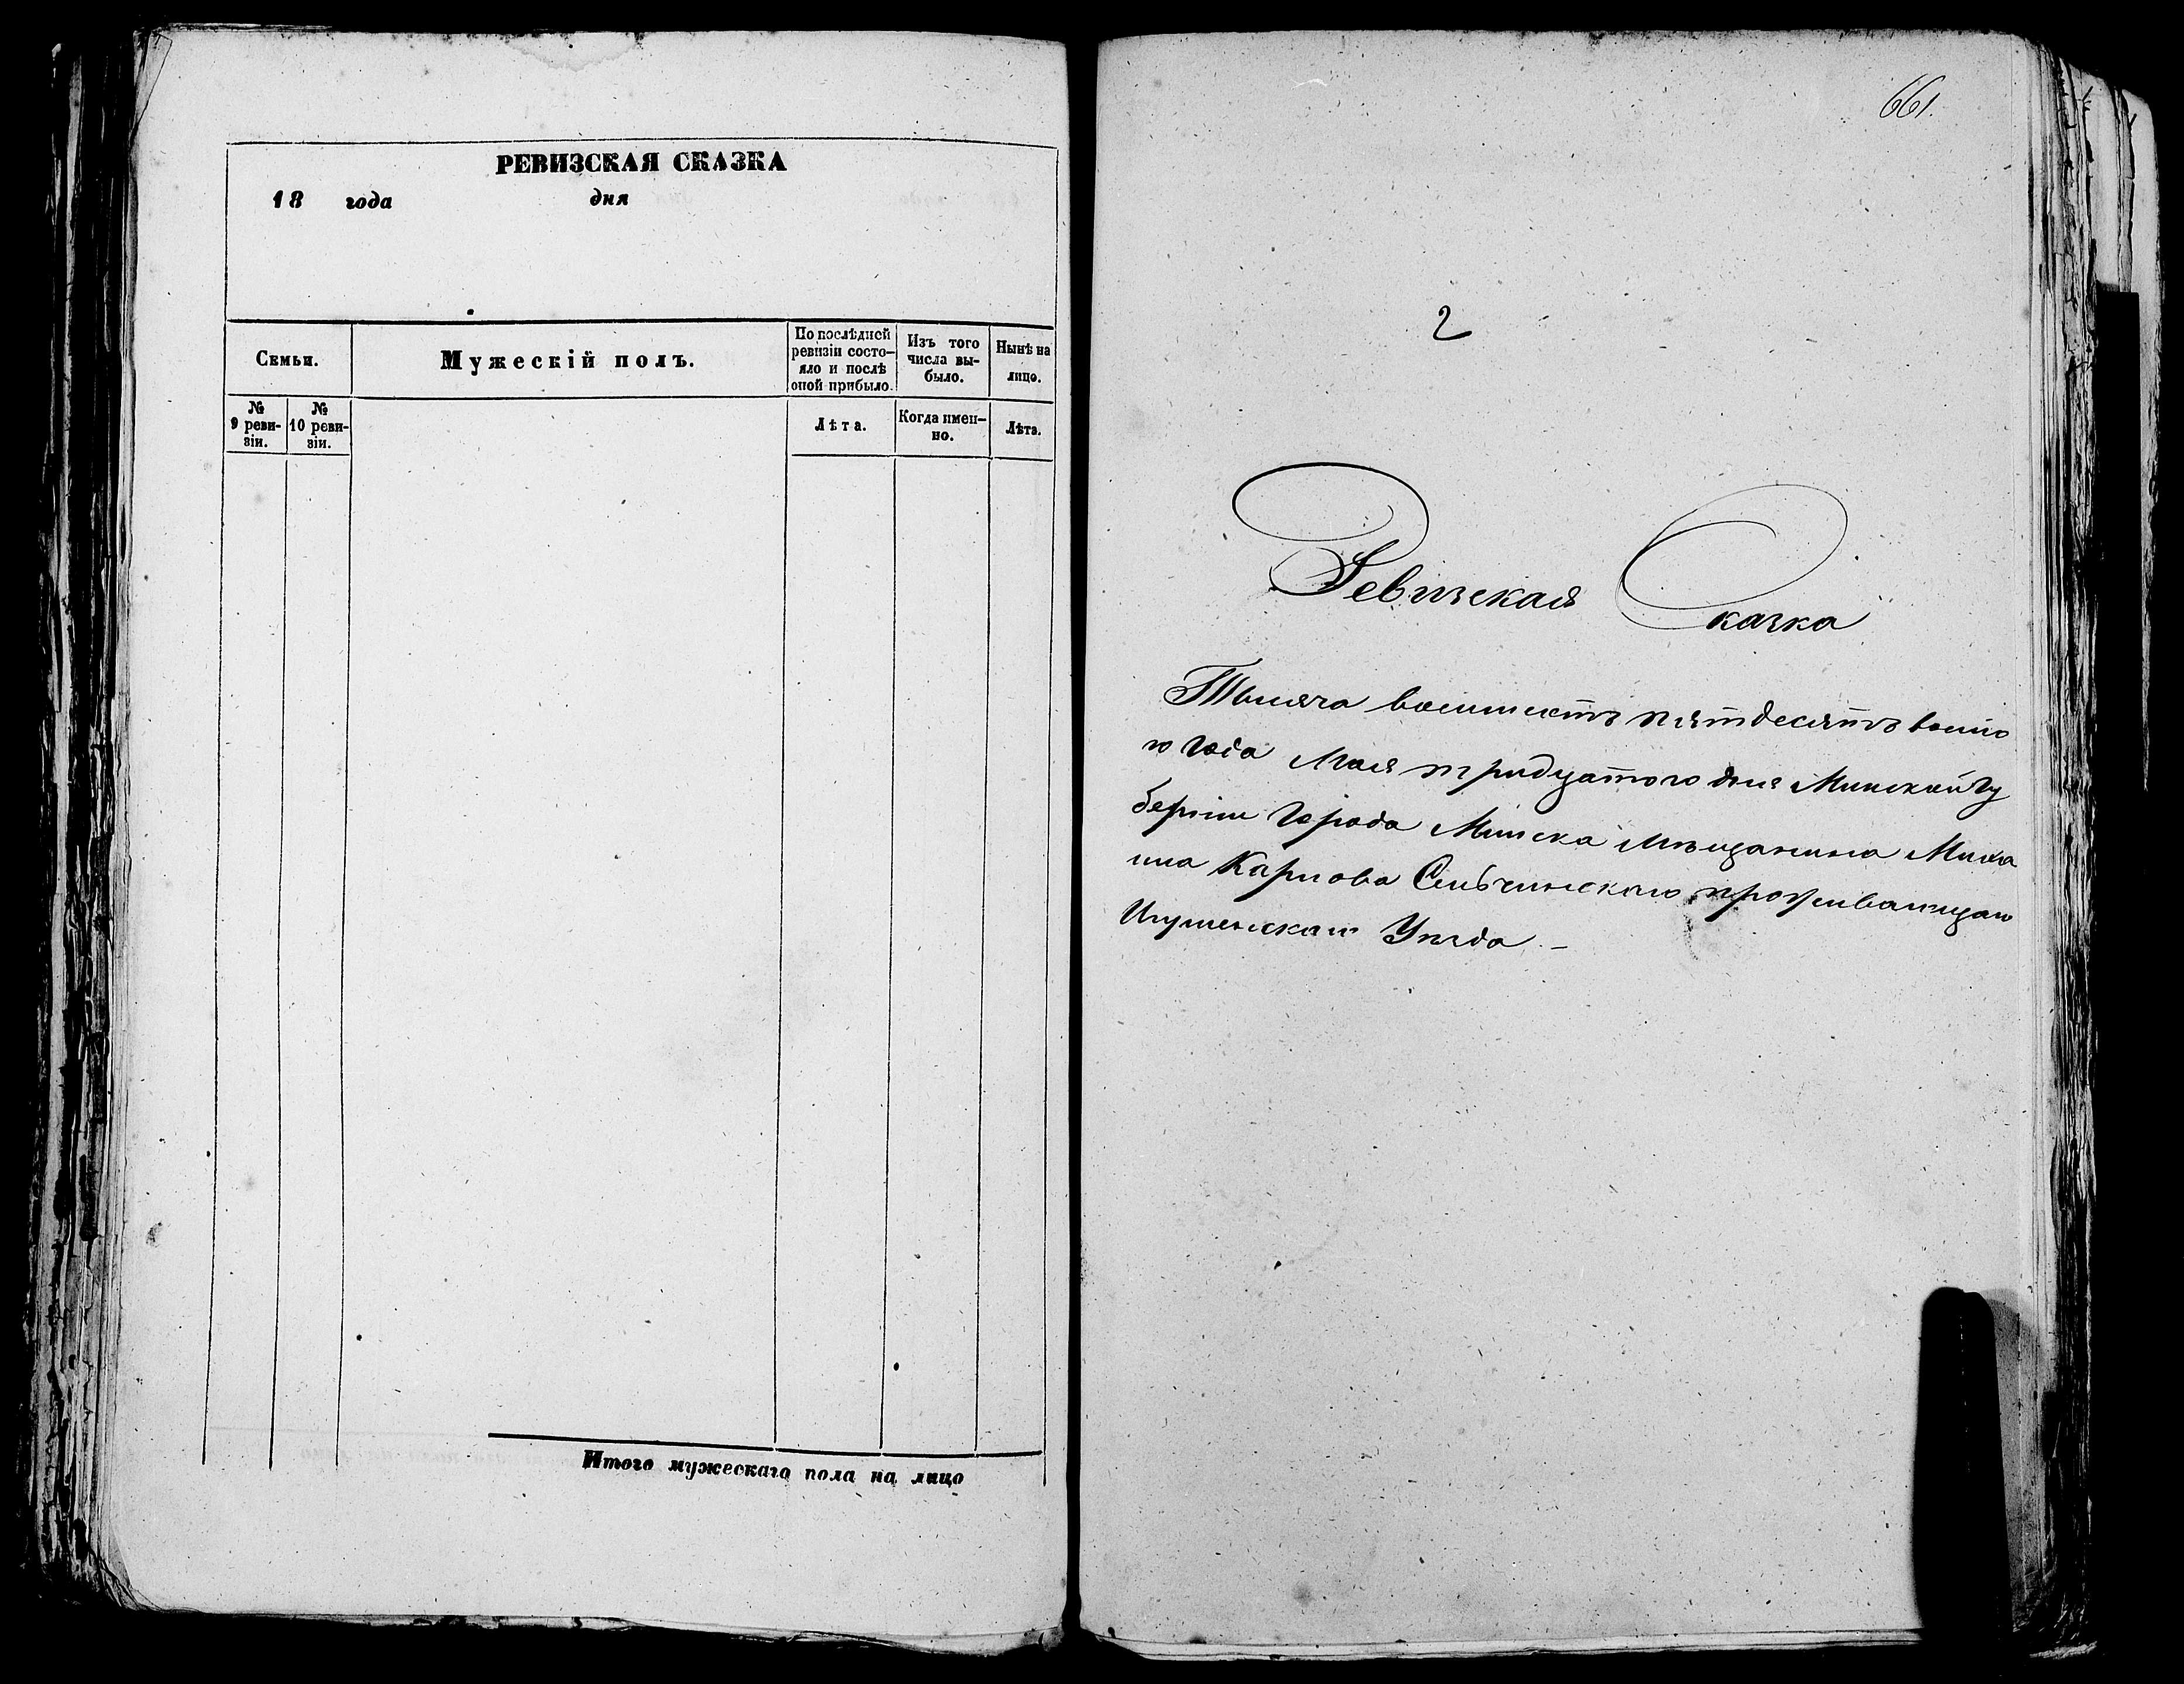 РЕВИЗСКАЯ СКАЗКА
18 года дня
Семьи.
Мужескій полъ.
По послѣдней
ревизіи состо-
яло и послѣ
оной прибыло.
Изъ того
числа вы-
было.
Нынѣ на
лицо.
№
9 реви-
зіи.
№
10 реви-
зіи.
Лѣта.
Когда имен-
но.
Лѣта.
Итого мужескаго пола на лицо
661.
2
Ревизская Сказка
Тысяча восимсотъ пятдесятъ восмо
го года Мая тридцатого дня Минской Гу
берніи Города Минска мѣщанина Миха
ила Карпова проживающаго
Игуменскаго Уѣзда. –